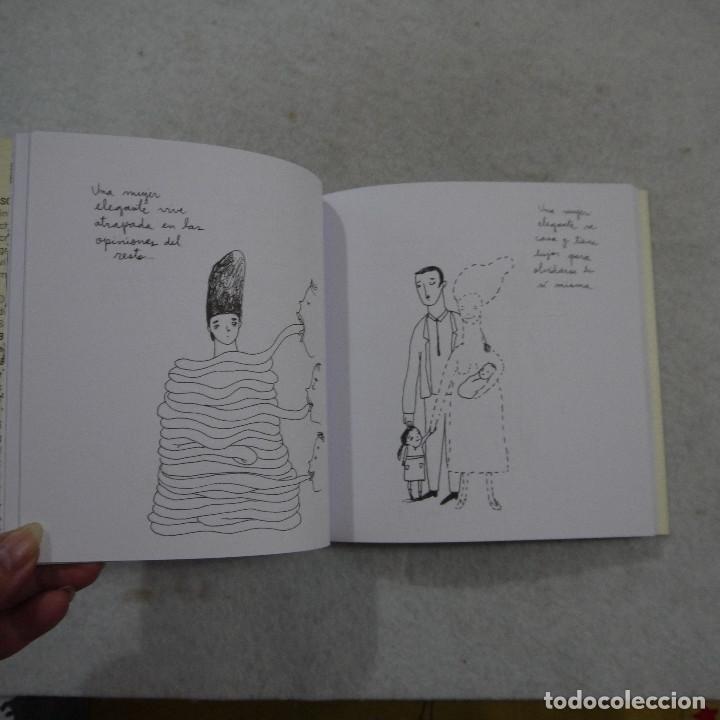 Una mujer
elegante vive
atrapada en las
opiniones del
resto...
Una mujer
elegante se
casa y tiene
hijos para
olvidarse de
sí misma
todocoleccion.net